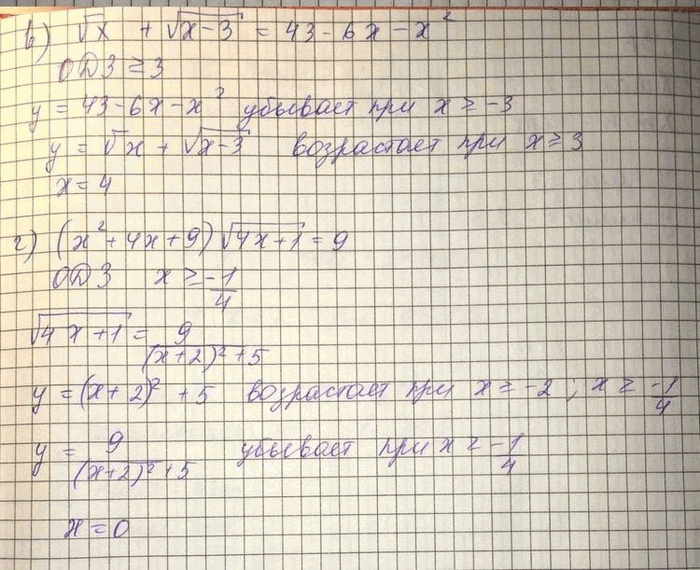 в) √x + √(x-3) = 43-6x-x²
ОДЗ ≥ 3
y = 43-6x-x² убывает при x ≥ -3
y = √x + √(x-3) возрастает при x ≥ 3
x = 4
г) (x²+4x+9)√(4x+1) = 9
ОДЗ x ≥ -1/4
√(4x+1) = 9/((x+2)²+5)
y = (x+2)²+5 возрастает при x ≥ -2 ; x ≥ -1/4
y = 9/((x+2)²+5) убывает при x ≥ -1/4
x = 0